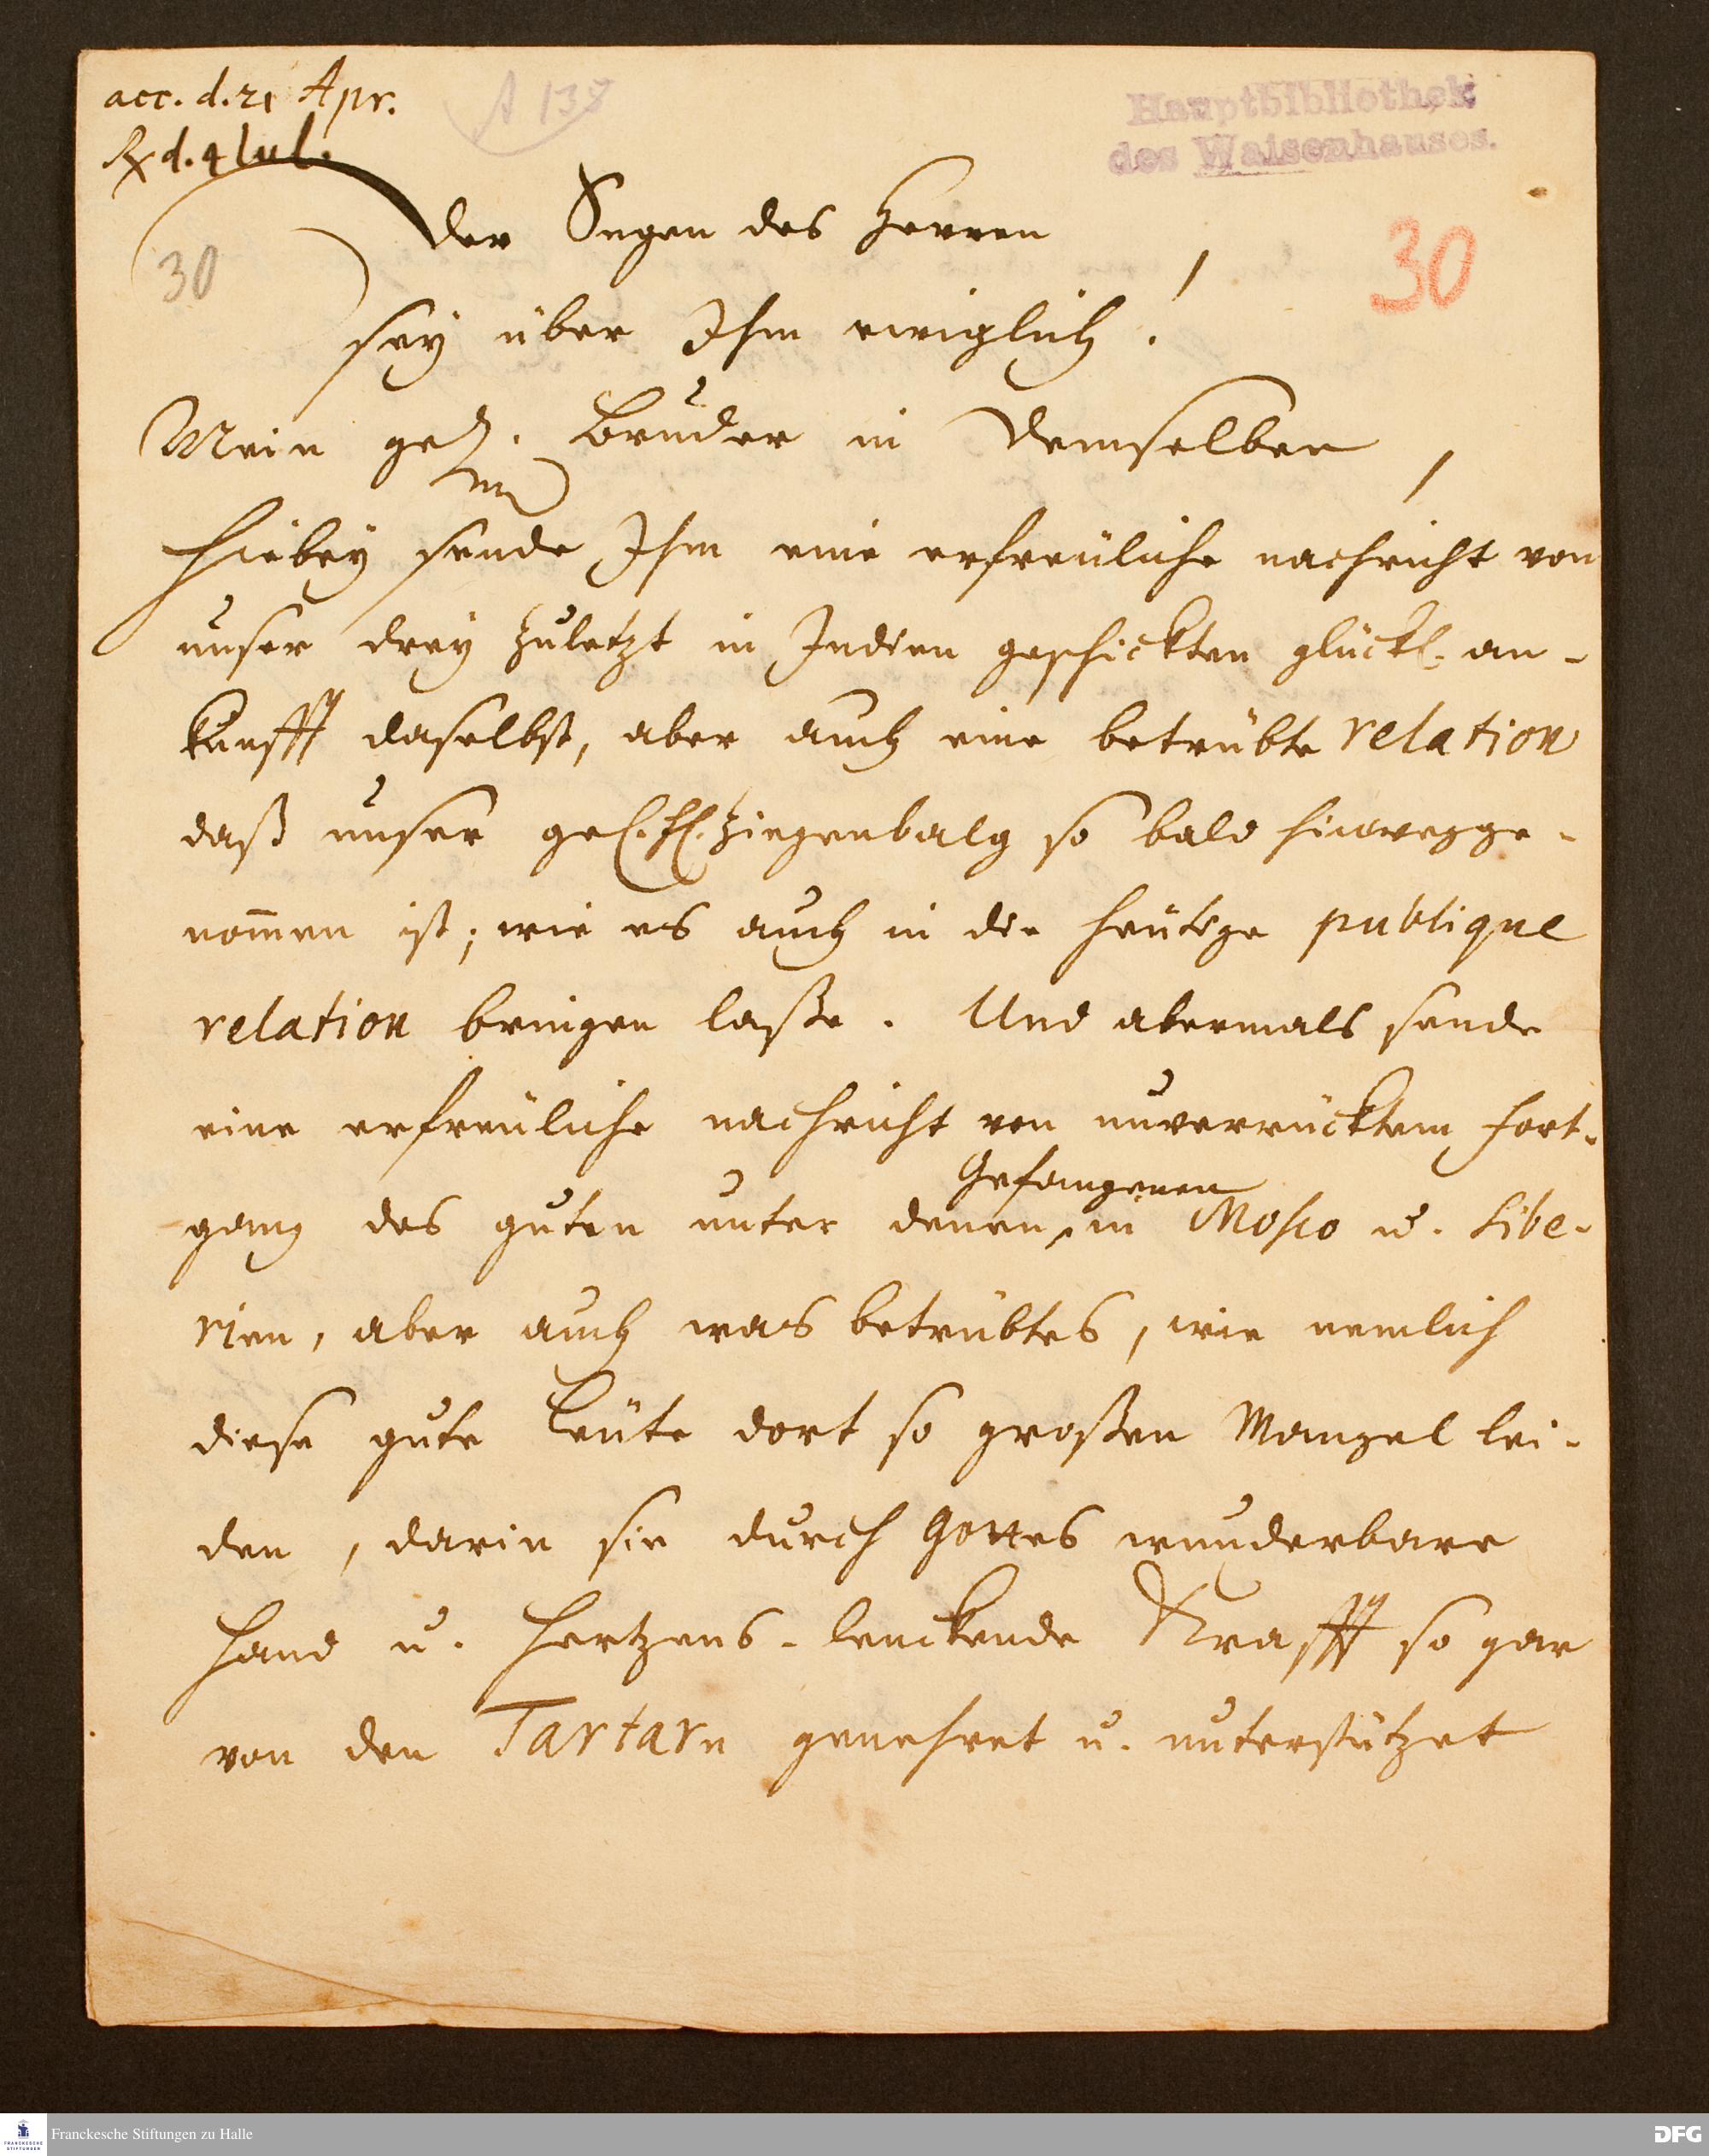 acc. d. 21 Apr.
A 138
Rx d. 4 Iul.
Hauptbibliothek
des Waisenhauses.
der Segen des Herren
30
30
sey über Ihm ewiglich!
Mein gel. Bruder in demselben,
hiebey sende Ihm eine erfreuliche nachricht von
unser drey zuletzt in Indien geschickten glückl. an-
kunfft daselbst, aber auch eine betrübte relation
daß unser gel. H. Ziegenbalg so bald hinwegge-
nom̄en ist; wie es auch in die heutige publique
relation bringen laße. Und abermals sende
eine erfreuliche nachricht von unverrücktem fort-
Gefangenen
gang des guten unter denen in Mosco u. Sibe-
rien, aber auch was betrübtes, wie nemlich
diese gute Leute dort so großen Mangel lei-
den, darin sie durch Gottes wunderbare
Hand u. Hertzens-lenckende Krafft so gar
von den Tartarn genehret u. unterstützet
Franckesche Stiftungen zu Halle
DFG